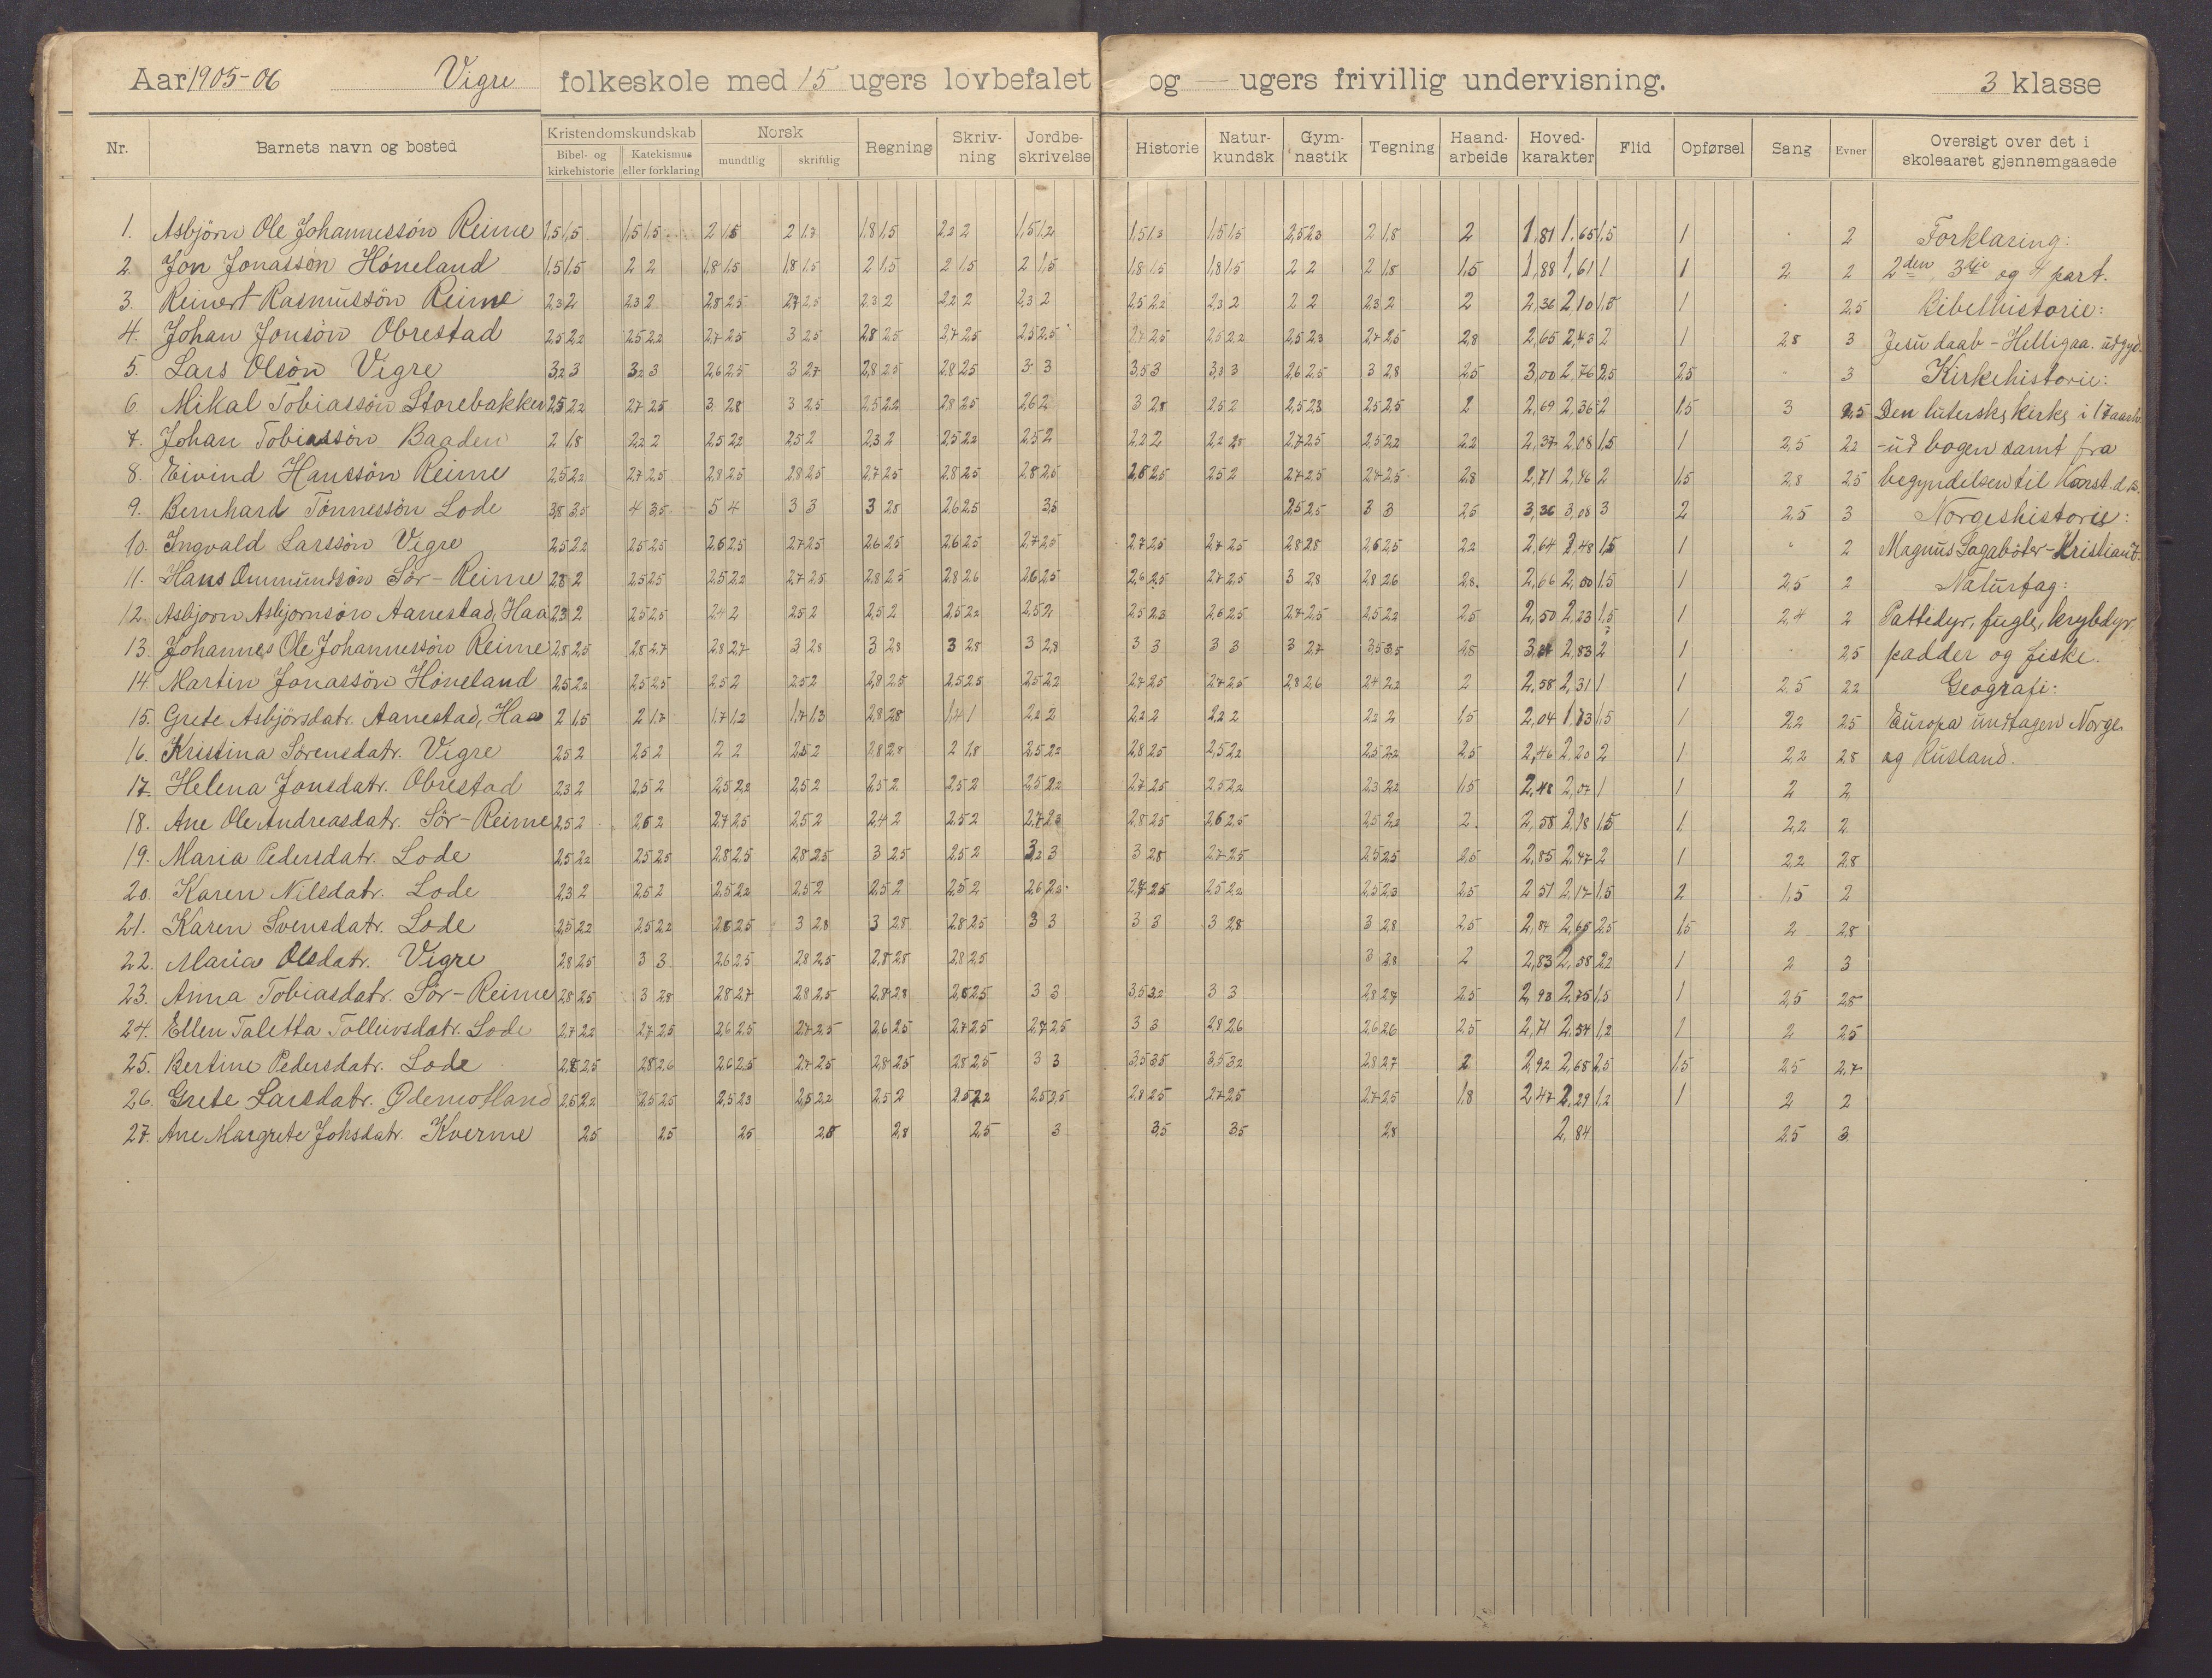 Aar 1905-06 Vigre folkeskole med 15 ugers lovbefalet og — ugers frivillig undervisning. 3 klasse
Nr. Barnets navn og bosted Kristendomskundskab Norsk Regning Skriv-ning Jordbe-skrivelse Historie Natur-kundsk Gym-nastik Tegning Haand-arbeide Hoved-karakter Flid Opførsel Sang Evner Oversigt over det i skoleaaret gjennemgaaede
Bibel- og kirkehistorie Katekismus eller forklaring mundtlig skriftlig
1. Asbjörn Ole Johannessön Reime 1,5 1,5 1,5 1,5 2 1,5 2 1,7 1,8 1,5 2,2 2 1,5 1,2 1,5 1,3 1,5 1,5 2,5 2,3 2 1,8 2 1,81 1,65 1,5 1 2 Forklaring:
2. Jon Jonassön Höneland 1,5 1,5 2 2 1,8 1,5 1,8 1,5 2 1,5 2 1,5 2 1,5 1,8 1,5 1,8 1,5 2 2 2 1,8 1,5 1,88 1,61 1 1 2 2 2den, 3die og 4 part.
3. Reinert Rasmussön Reime 2,3 2 2,3 2 2,8 2,5 2,7 2,5 2,3 2 2,2 2 2,3 2 2,5 2,2 2,3 2 2 2 2,3 2 2 2,36 2,10 1,5 1 2,5 Bibelhistorie:
4. Johan Jonsön Obrestad 2,5 2,2 2,5 2,2 2,7 2,5 3 2,5 2,8 2,5 2,7 2,5 2,5 2,5 2,7 2,5 2,5 2,2 2,5 2,3 2,7 2,5 2,8 2,65 2,43 2 1 2,8 3 Jesu daab - Helligaa. udgyd.
5. Lars Olsön Vigre 3,2 3 3,2 3 2,6 2,5 3 2,7 2,8 2,5 2,8 2,5 3 3 3,5 3 3,3 3 2,6 2,5 3 2,8 2,5 3,00 2,76 2,5 2,5 3 Kirkehistorie:
6. Mikal Tobiassön Storebakken 2,5 2,2 2,7 2,5 3 2,8 3 2,5 2,5 2,2 2,8 2,5 2,6 2 3 2,8 2,5 2 2,5 2,3 2,5 2,5 2 2,69 2,36 2 1,5 3 2,5 Den luterske kirke i 17 aarh.
7. Johan Tobiassön Baaden 2 1,8 2,2 2 2,5 2,2 2,5 2 2,3 2 2,5 2,2 2,5 2 2,2 2 2,2 2,7 2,5 2,5 2,2 2,2 2,37 2,08 1,5 1 2,5 2,2 - ud bogen samt fra
8. Eivind Hanssön Reime 2,5 2,2 2,7 2,5 2,8 2,5 2,8 2,5 2,7 2,5 2,8 2,5 2,8 2,5 2,8 2,5 2,5 2 2,7 2,5 2,7 2,5 2,8 2,71 2,46 2 1,5 2,8 2,5 begyndelsen til Konst. d.
9. Bernhard Tönnessön Lode 3,8 3,5 4 3,5 5 4 3 3 3 2,8 2,6 2,5 3,5 2,5 2,5 3 3 2,5 3,36 3,08 3 2 2,5 3 Norgeshistorie:
10. Ingvald Larssön Vigre 2,5 2,2 2,5 2,5 2,6 2,5 2,7 2,5 2,6 2,5 2,6 2,5 2,7 2,5 2,7 2,5 2,7 2,5 2,8 2,8 2,6 2,5 2,2 2,64 2,48 1,5 1 2 Magnus Lagaböter - Kristian
11. Hans Ommundsön Sör-Reime 2,3 2 2,5 2,5 2,5 2,2 2,7 2,5 2,8 2,5 2,8 2,6 2,6 2,5 2,6 2,5 2,7 2,5 3 2,8 2,8 2,6 2,8 2,66 1,5 1 2,5 2 Naturfag:
12. Asbjorn Asbjornsön Aanestad, Haa 2,3 2 2,5 2,5 2,4 2 2,5 2 2,5 2 2,5 2,2 2,5 2 2,5 2,3 2,6 2,5 2,7 2,5 2,5 2,2 2,5 2,50 2,23 1,5 1 2,4 2 Pattedyr, fugle, krybdyr,
13. Johannes Ole Johannessön Reime 2,8 2,5 2,8 2,7 2,8 2,7 3 2,8 3 2,8 3 2,8 3 2,8 3 3 3 3 3 2,7 3,5 3,5 2,5 2,83 2 1 2,5 padder og fiske.
14. Martin Jonassön Höneland 2,5 2,2 2,5 2,5 2,5 2 2,5 2 2,8 2,5 2,5 2,5 2,5 2,2 2,7 2,5 2,7 2,5 2,8 2,6 2,4 2,2 2 2,58 2,31 1 1 2,5 2,2 Geografi:
15. Grete Asbjörsdatr. Aanestad, Haa 2 1,5 2 1,7 1,7 1,2 1,7 1,3 2,8 2,8 1,4 1 2,2 2 2,2 2 2,2 2 2,2 2 1,5 2,04 1,83 1,5 1 2,2 2,5 Europa undtagen Norge
16. Kristina Sörensdatr. Vigre 2,5 2 2,5 2 2 2 2,5 2 2,8 2,8 2 1,8 2,5 2,2 2,8 2,5 2,5 2,2 2,5 2,2 2,5 2,46 2,20 2 1 2,2 2,8 og Rusland.
17. Helena Jonsdatr. Obrestad 2,3 2 2,5 2 2,5 2,2 2,5 2 2,5 2 2,5 2 2,5 2,2 2,7 2,5 2,5 2,2 2,3 2,2 1,5 2,48 2,07 1 1 2 2
18. Ane Ole Andreasdatr. Sör-Reime 2,5 2 2,6 2 2,7 2,5 2,5 2 2,4 2 2,5 2 2,7 2,5 2,8 2,5 2,6 2,5 2,5 2,2 2 2,58 2,18 1,5 1 2,2 2
19. Maria Pedersdatr. Lode 2,5 2,2 2,5 2,5 2,8 2,5 2,8 2,5 3 2,5 2,5 2 3,2 3 3 2,8 2,7 2,5 2,5 2,5 2,5 2,85 2,47 2 1 2,2 2,8
20. Karen Nilsdatr. Lode 2,3 2 2,5 2 2,5 2,2 2,5 2 2,5 2 2,5 2 2,6 2,5 2,7 2,5 2,5 2,2 2,5 2,3 2,5 2,51 2,17 1,5 2 1,5 2
21. Karen Svensdatr. Lode 2,5 2,2 2,5 2,2 2,6 2,5 3 2,8 3 2,8 2,8 2,5 3 3 3 3 3 2,8 3 2,8 2,5 2,87 2,65 2,5 1,5 2 2,8
22. Maria Olsdatr. Vigre 2,8 2,5 3 3 2,6 2,5 2,8 2,5 2,8 2,8 2,8 2,5 3 2,8 2 2,83 2,58 2,2 1 2 3
23. Anna Tobiasdatr. Sör-Reime 2,8 2,5 3 2,8 2,8 2,7 2,8 2,5 2,8 2,8 2,6 2,5 3 3 3,5 3,2 3 3 2,8 2,7 2,5 2,93 2,75 1,5 1 2,5 2,8
24. Ellen Taletta Tolleivsdatr. Lode 2,7 2,2 2,7 2,5 2,6 2,5 2,7 2,5 2,6 2,5 2,7 2,5 2,7 2,5 3 3 2,8 2,6 2,6 2,6 2,5 2,71 2,54 1,2 1 2 2,5
25. Bertine Pedersdatr. Lode 2,8 2,5 2,8 2,6 2,6 2,5 2,7 2,5 2,8 2,5 2,8 2,5 3 3 3,5 3,5 3,5 3,2 2,8 2,7 2 2,92 2,68 2,5 1,5 2,5 2,7
26. Grete Larsdatr. Ødemotland 2,5 2,2 2,5 2,5 2,5 2,3 2,5 2,2 2,5 2 2,5 2,2 2,5 2,5 2,8 2,5 2,7 2,5 2,7 2,5 1,8 2,47 2,29 1,2 1 2 2
27. Ane Margrete Johsdatr. Kverme 2,5 2,5 2,5 2,8 2,8 2,5 3 3,5 3,5 2,8 2,84 2,5 3